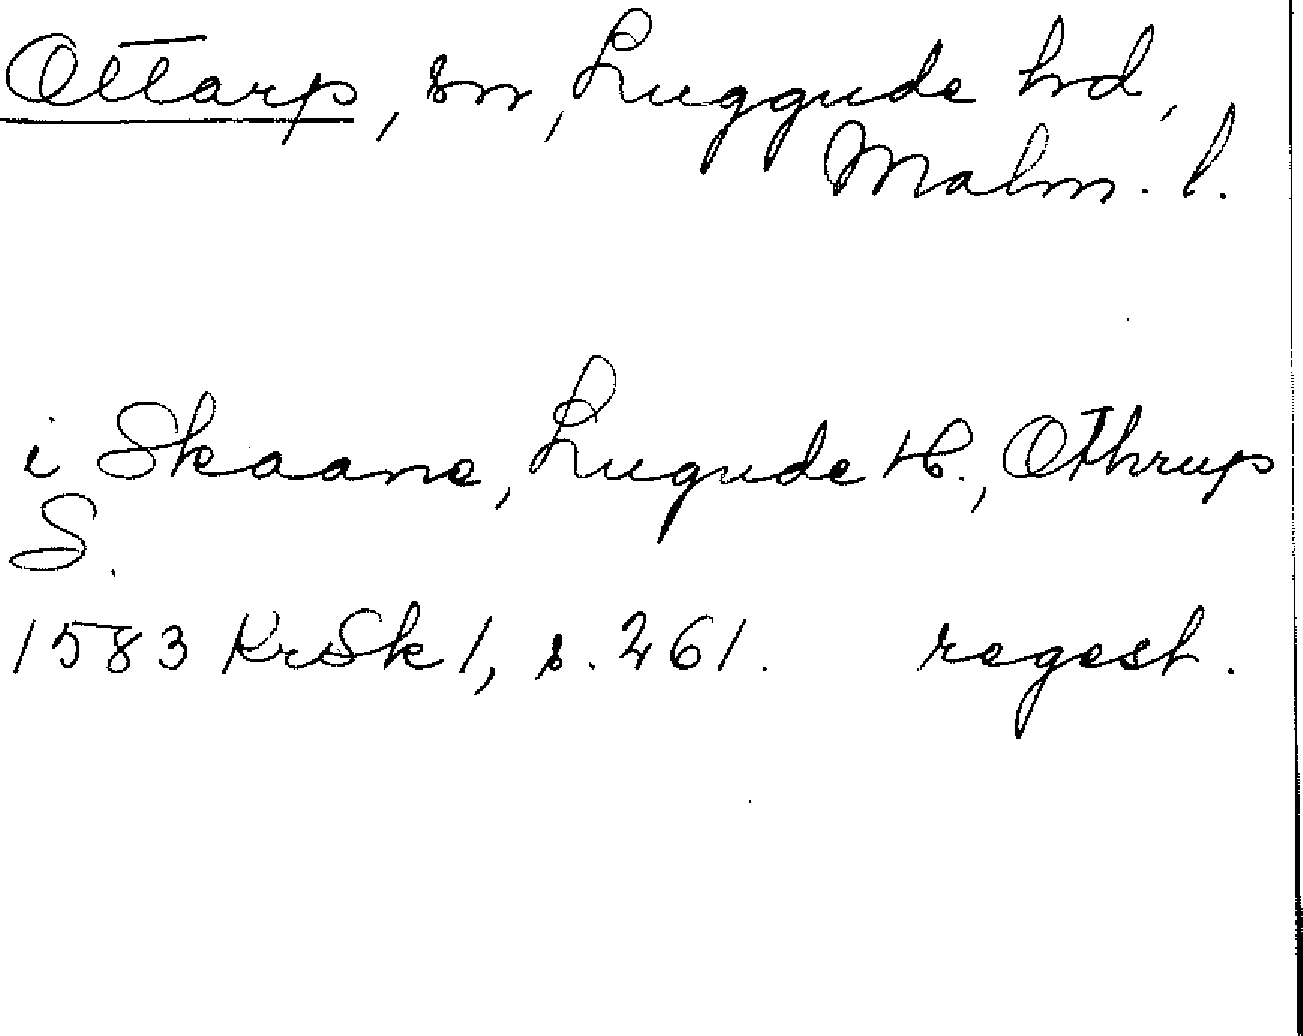 Ottarp, sn, Luggude hd,
Malm. l.
i Skaane, Lugude H., Othrup
S.
1583 KrSk 1, s. 261. regest.